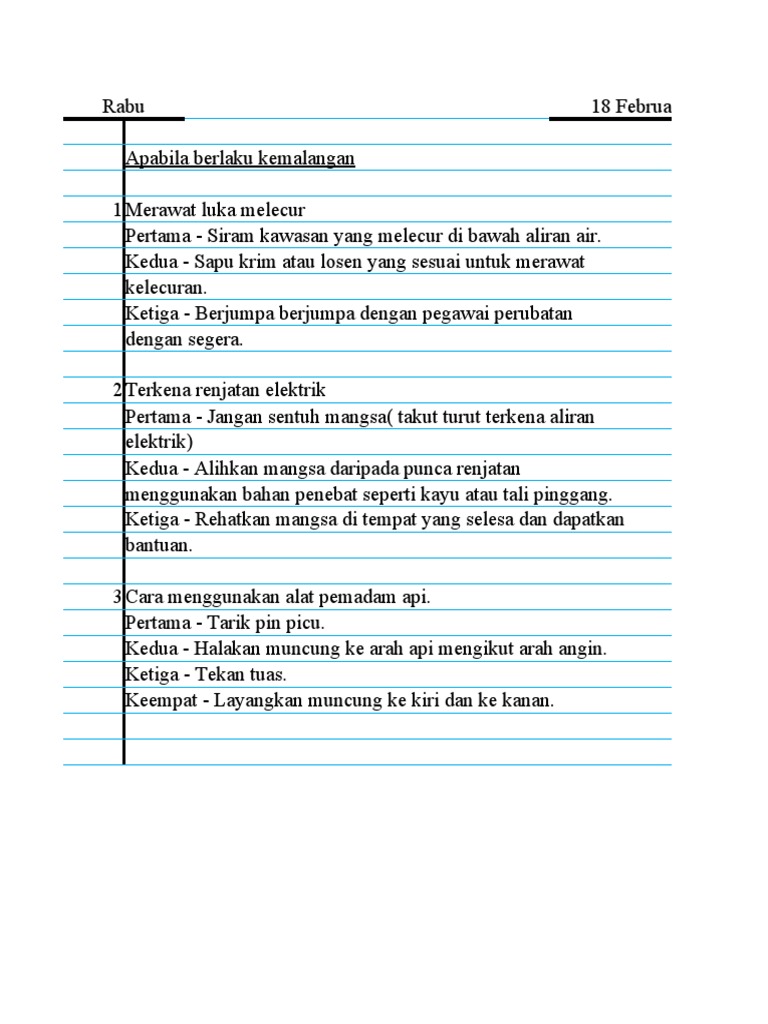 Rabu 18 Februa
Apabila berlaku kemalangan
1 Merawat luka melecur
Pertama - Siram kawasan yang melecur di bawah aliran air.
Kedua - Sapu krim atau losen yang sesuai untuk merawat
kelecuran.
Ketiga - Berjumpa berjumpa dengan pegawai perubatan
dengan segera.
2 Terkena renjatan elektrik
Pertama - Jangan sentuh mangsa( takut turut terkena aliran
elektrik)
Kedua - Alihkan mangsa daripada punca renjatan
menggunakan bahan penebat seperti kayu atau tali pinggang.
Ketiga - Rehatkan mangsa di tempat yang selesa dan dapatkan
bantuan.
3 Cara menggunakan alat pemadam api.
Pertama - Tarik pin picu.
Kedua - Halakan muncung ke arah api mengikut arah angin.
Ketiga - Tekan tuas.
Keempat - Layangkan muncung ke kiri dan ke kanan.